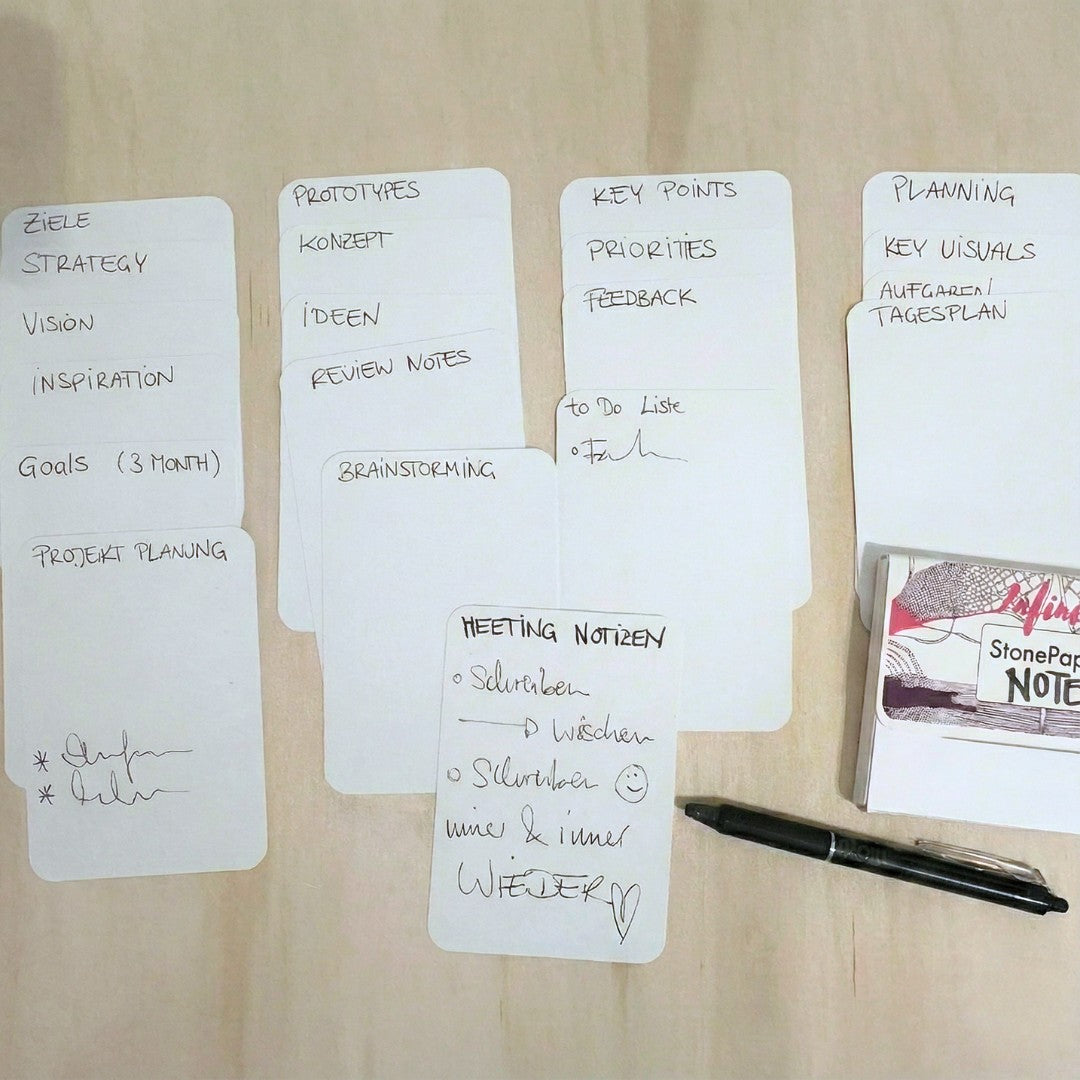 ZIELE
STRATEGY
VISION
INSPIRATION
Goals (3 MONTH)
PROJEKT PLANUNG
PROTOTYPES
KONZEPT
IDEEN
REVIEW NOTES
BRAINSTORMING
KEY POINTS
PRIORITIES
FEEDBACK
to Do Liste
MEETING NOTIZEN
Schreiben
Wischen
Schreiben
immer & immer
WIEDER
PLANNING
KEY VISUALS
AUFGABEN/
TAGESPLAN
Infin
StonePap
NOTE